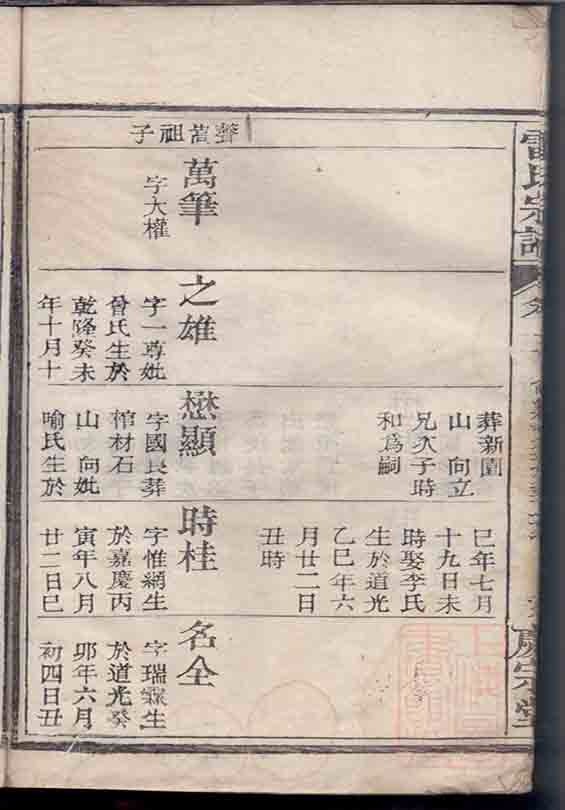 子祖蒷聲
雷氏宗譜
慶宗堂
萬筆
字大權
之雄
字一尊妣
曾氏生於
乾隆癸未
年十月十
葬新園
山 向立
兄次子時
和爲嗣
懋顯
字國良葬
棺材石
山 向妣
喻氏生於
巳年七月
十九日未
時娶李氏
生於道光
乙巳年六
月廿二日
丑時
時桂
字惟網生
於嘉慶丙
寅年八月
廿二日巳
名全
字瑞霖生
於道光癸
卯年六月
初四日丑